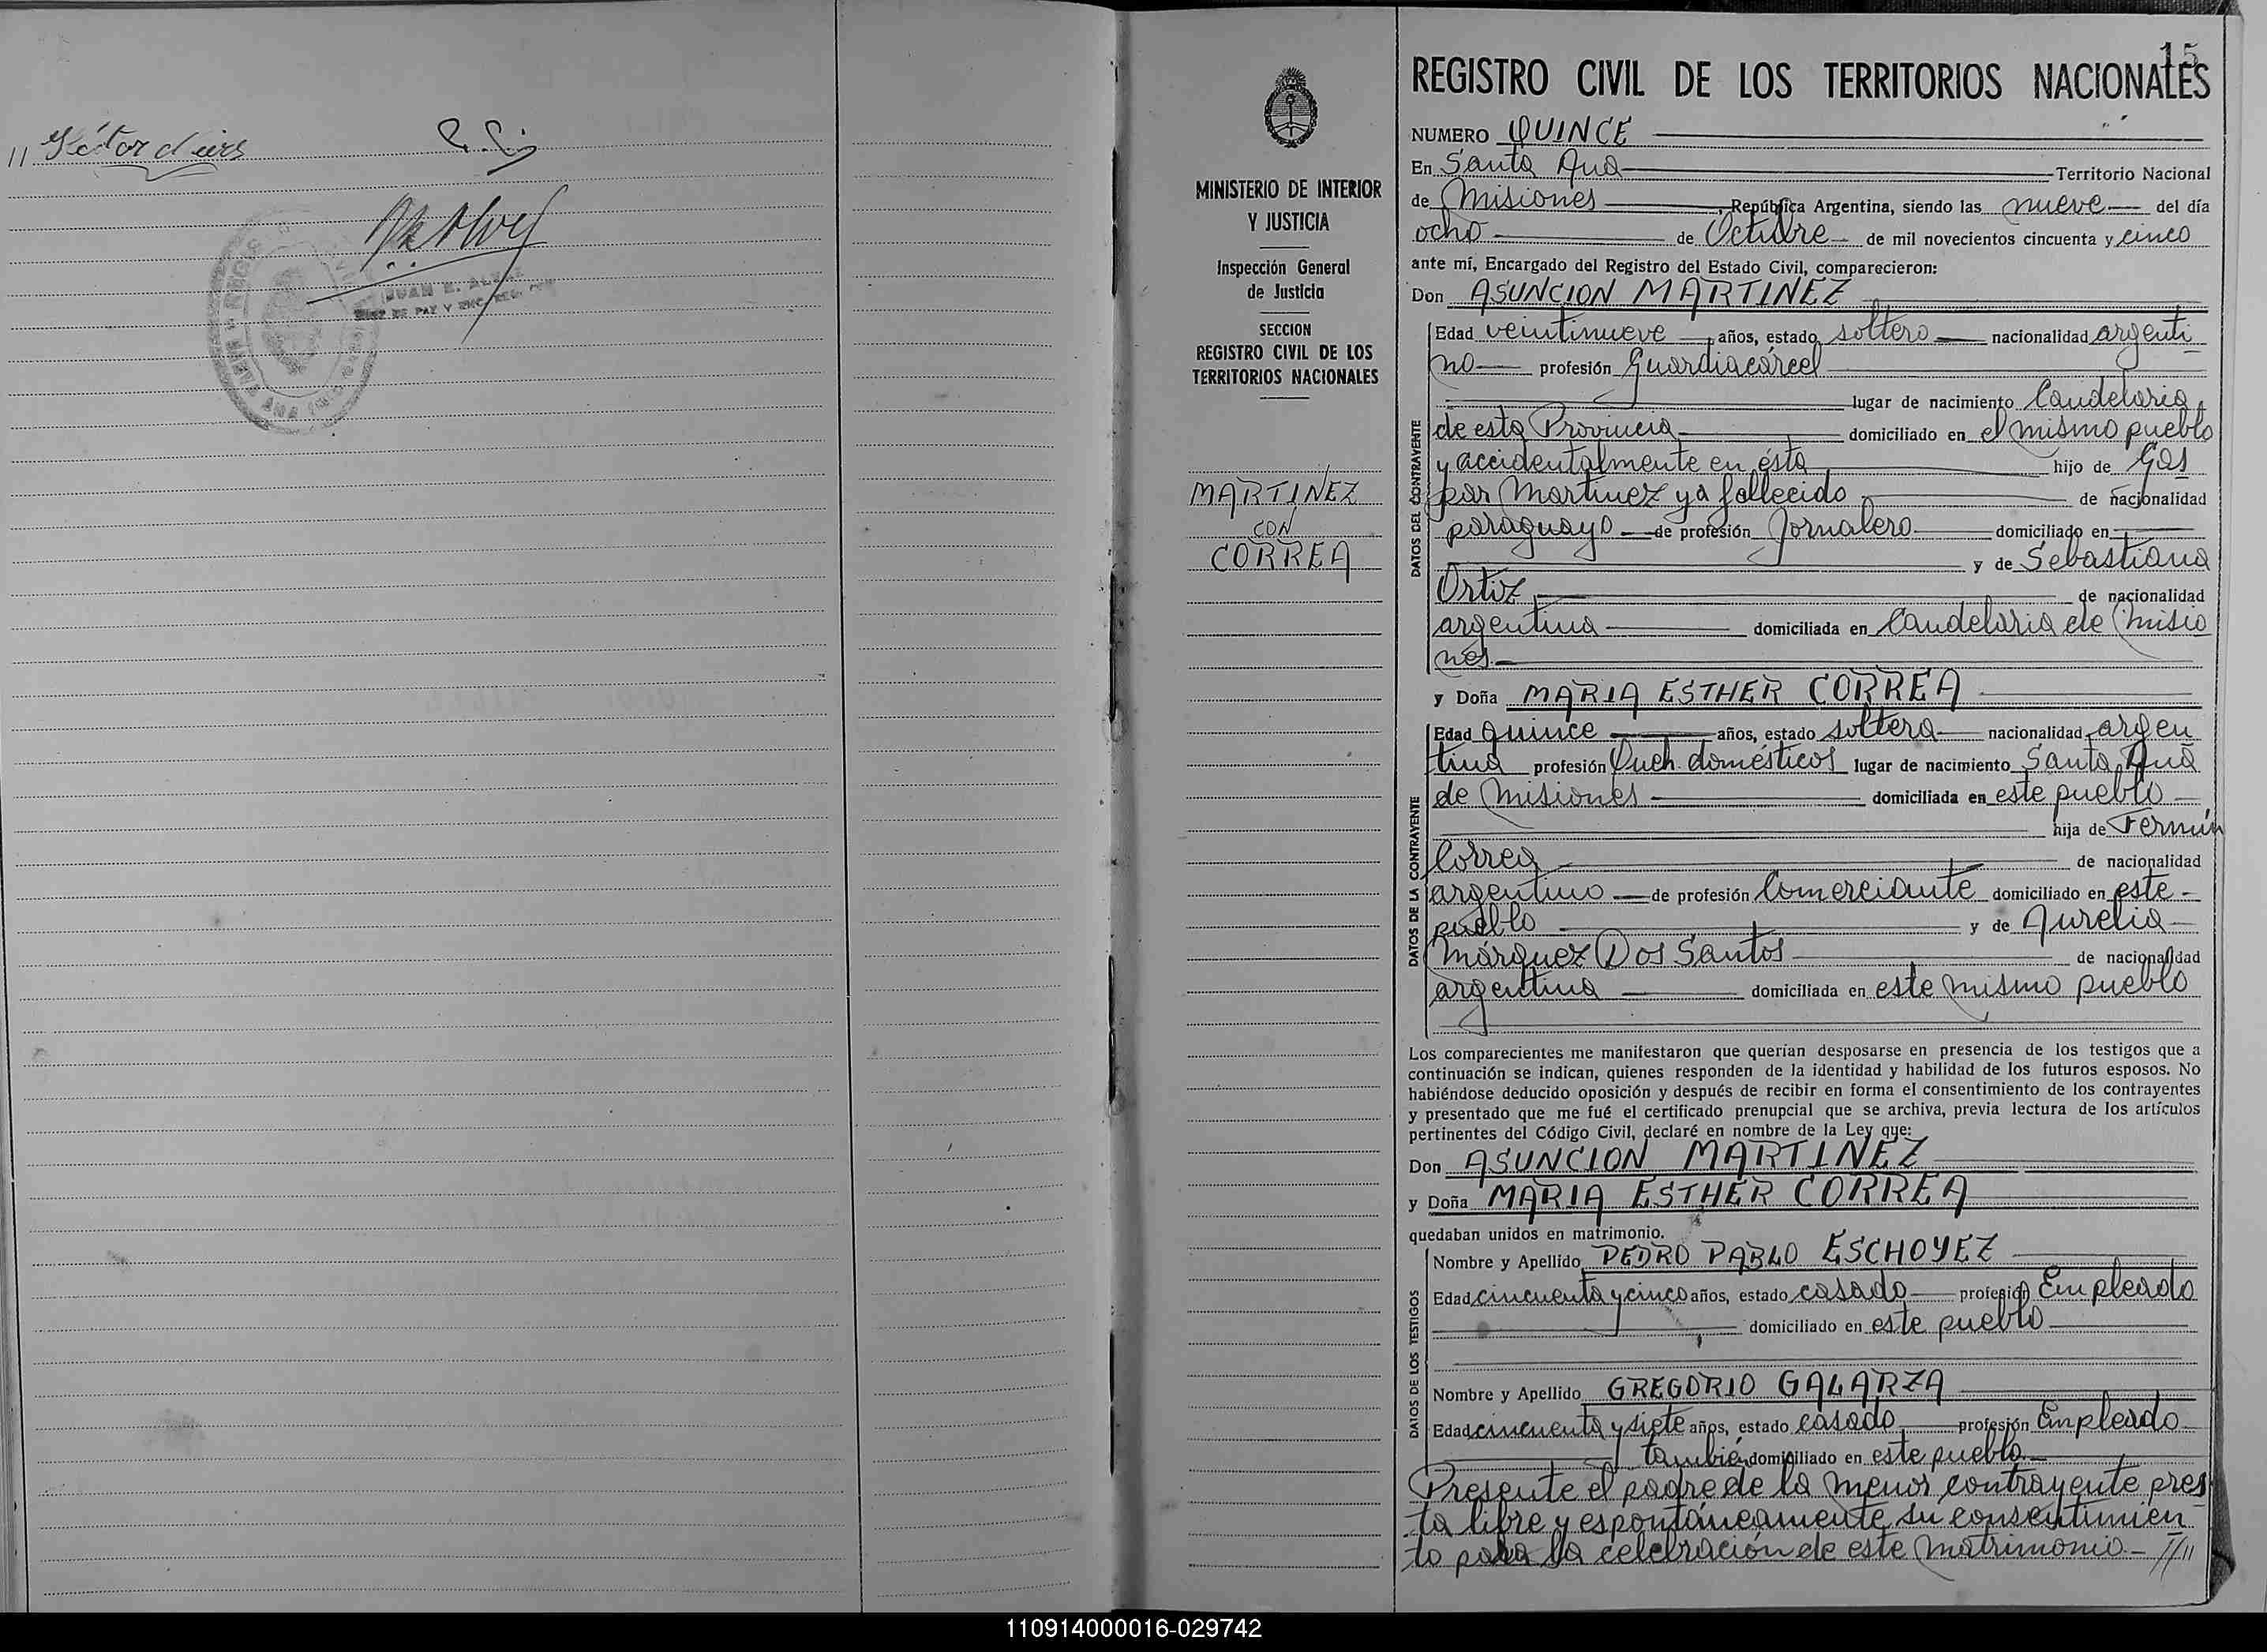 15
MINISTERIO DE INTERIOR
Y JUSTICIA
Inspección General
de Justicia
SECCION
REGISTRO CIVIL DE LOS
TERRITORIOS NACIONALES
MARTINEZ
CON
CORREA
REGISTRO CIVIL DE LOS TERRITORIOS NACIONALES
NUMERO QUINCE
En Santa Ana Territorio Nacional
de Misiones, República Argentina, siendo las nueve del día
ocho de Octubre de mil novecientos cincuenta y cinco
ante mí, Encargado del Registro del Estado Civil, comparecieron:
Don ASUNCION MARTINEZ
DATOS DEL CONTRAYENTE
Edad veintinueve años, estado soltero nacionalidad argenti
no profesión Guardiacárcel
lugar de nacimiento Candelaria
de esta Provincia domiciliado en el mismo pueblo
y accidentalmente en ésta hijo de Gas
par Martinez ya fallecido de nacionalidad
paraguayo de profesión Jornalero domiciliado en
y de Sebastiana
Ortiz de nacionalidad
argentina domiciliada en Candelaria de Misio
nes.
y Doña MARIA ESTHER CORREA
DATOS DE LA CONTRAYENTE
Edad quince años, estado soltera nacionalidad argen
tina profesión Queh. domésticos lugar de nacimiento Santa Ana
de Misiones domiciliada en este pueblo
hija de Fermín
Correa de nacionalidad
argentino de profesión Comerciante domiciliado en este
pueblo y de Aurelia
Márquez Dos Santos de nacionalidad
argentina domiciliada en este mismo pueblo
Los comparecientes me manifestaron que querían desposarse en presencia de los testigos que a
continuación se indican, quienes responden de la identidad y habilidad de los futuros esposos. No
habiéndose deducido oposición y después de recibir en forma el consentimiento de los contrayentes
y presentado que me fué el certificado prenupcial que se archiva, previa lectura de los artículos
pertinentes del Código Civil, declaré en nombre de la Ley que:
Don ASUNCION MARTINEZ
y Doña MARIA ESTHER CORREA
quedaban unidos en matrimonio.
DATOS DE LOS TESTIGOS
Nombre y Apellido PEDRO PABLO ESCHOYEZ
Edad cincuenta y cinco años, estado casado profesión Empleado
domiciliado en este pueblo
Nombre y Apellido GREGORIO GALARZA
Edad cincuenta y siete años, estado casado profesión Empleado
también domiciliado en este pueblo.
Presente el padre de la menor contrayente pres
ta libre y espontáneamente su consentimien
to para la celebración de este matrimonio.- ////
110914000016-029742